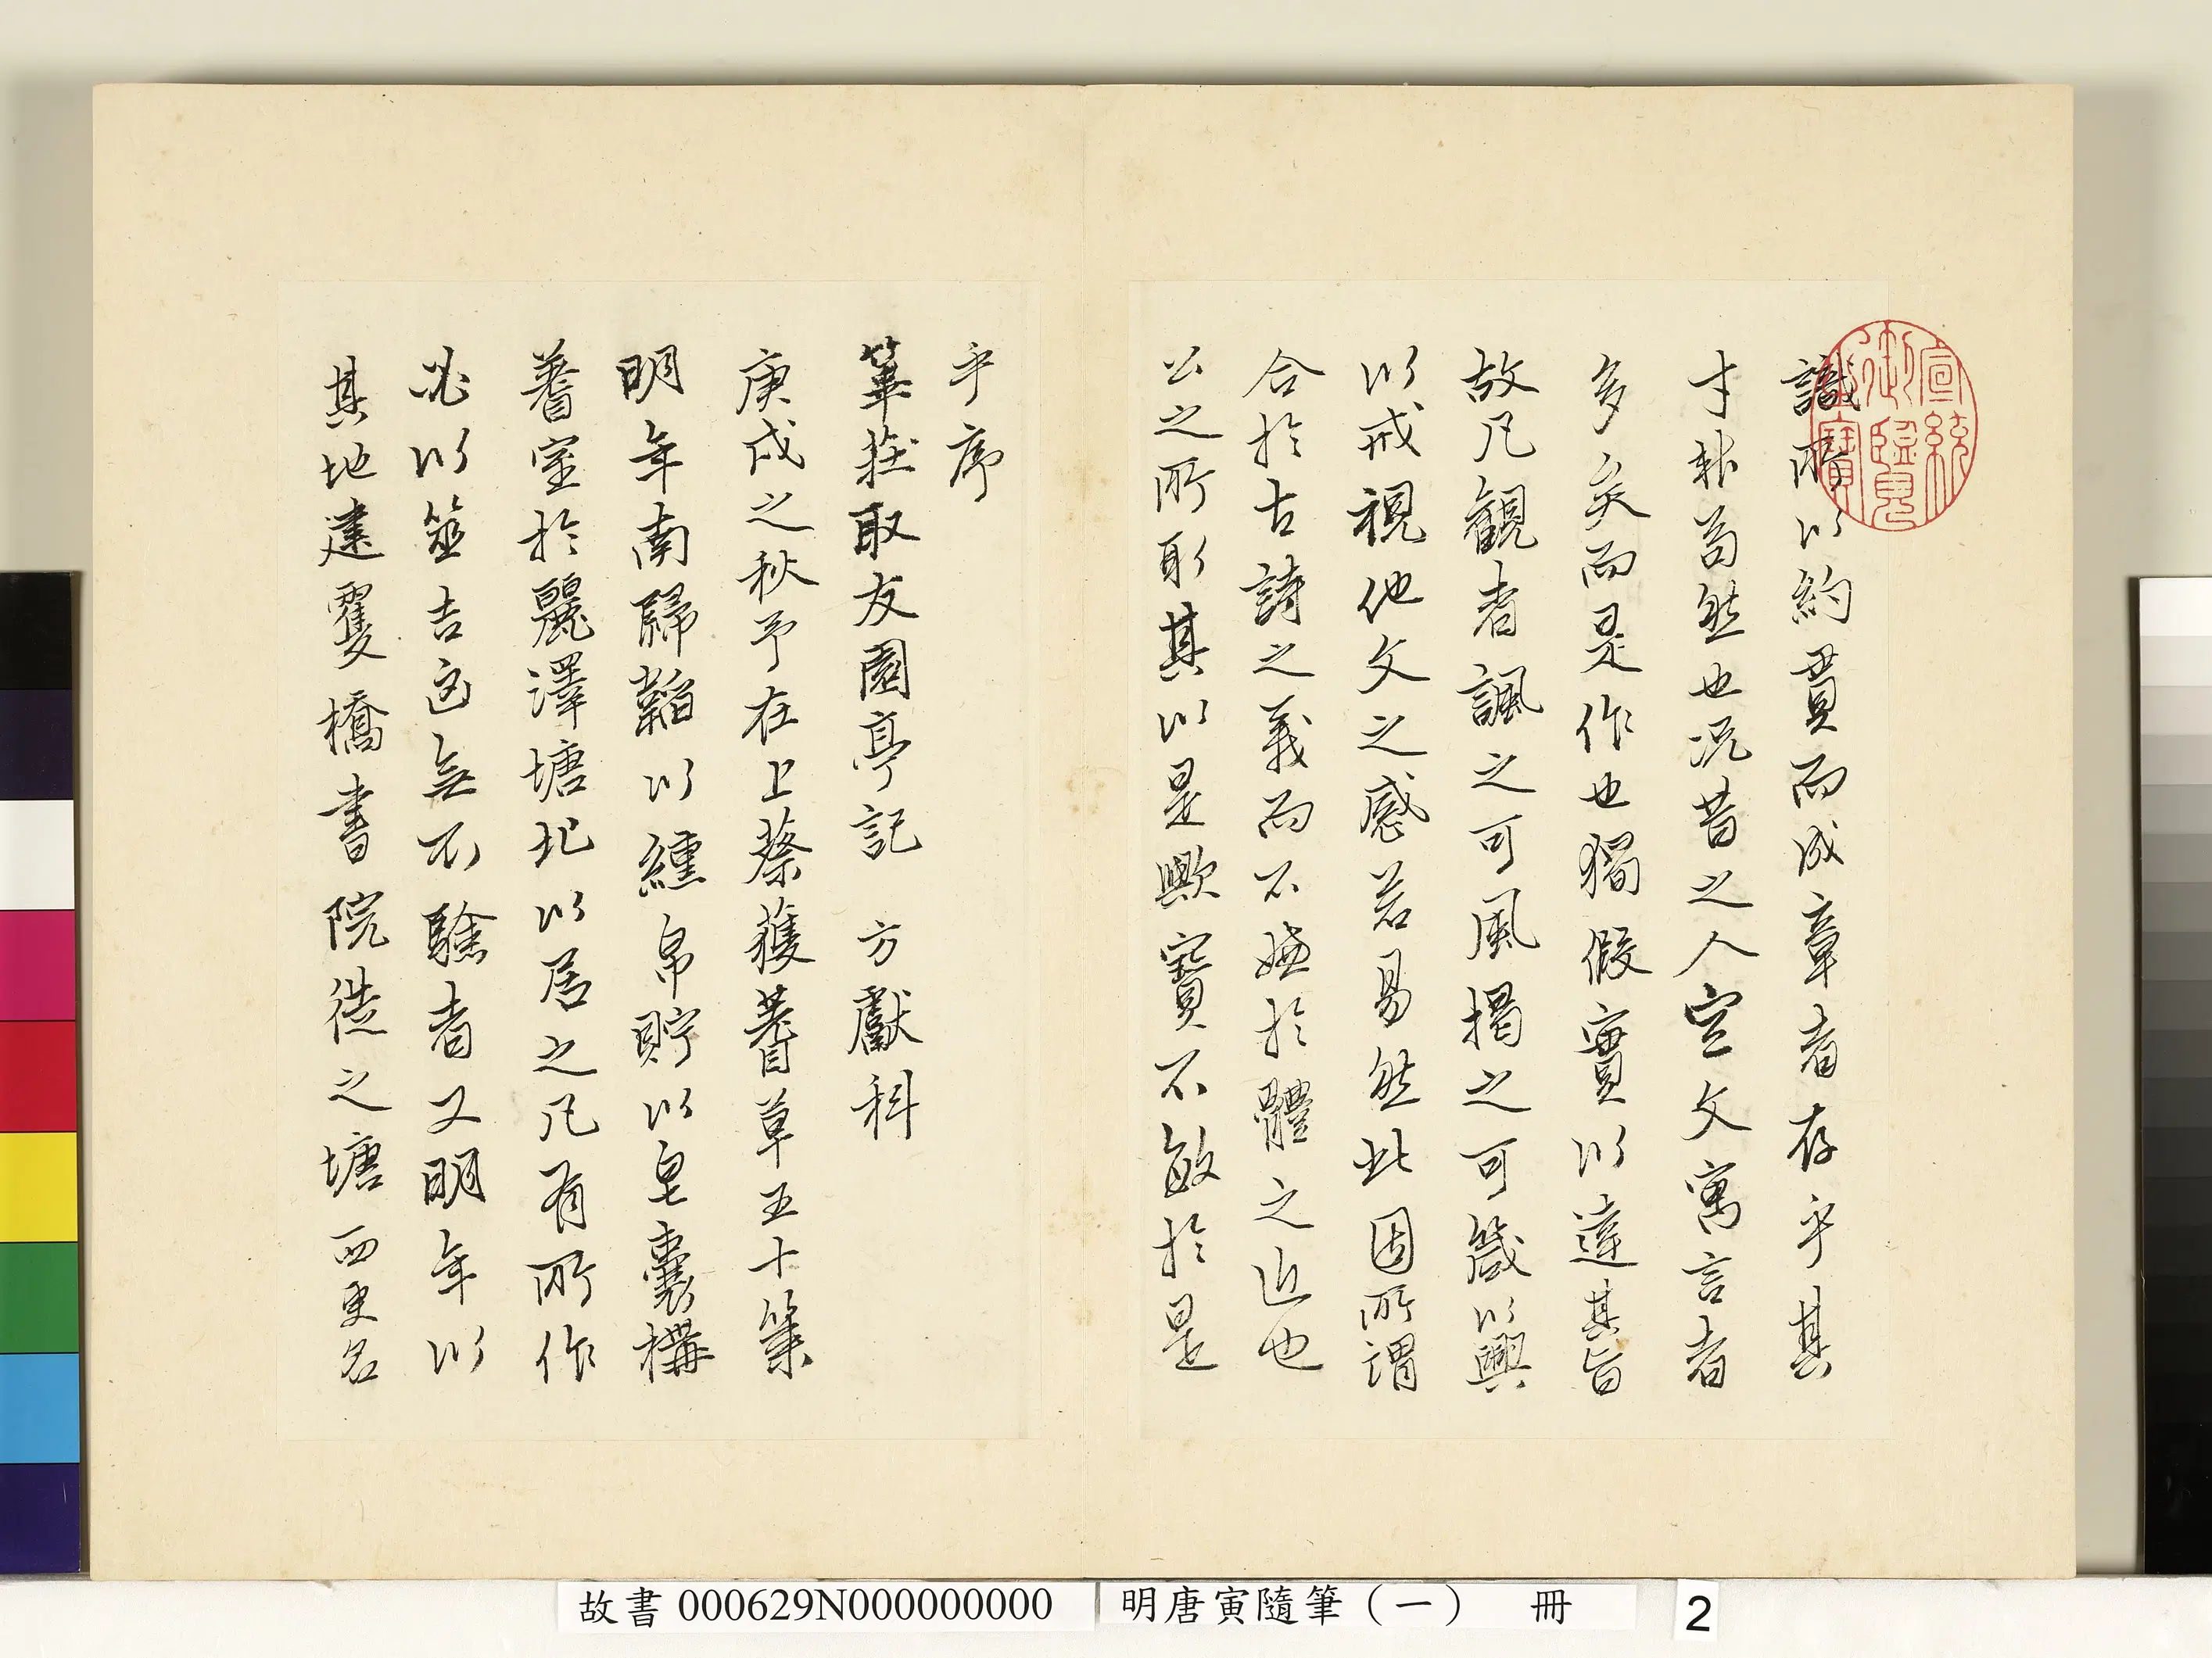 識所以約貫而成章者存乎其
才非苟然也況昔之人空文寓言者
多矣而是作也獨假實以達其旨
故凡觀者諷之可風揭之可箴以興
以戒視他文之感若易然此固所謂
合於古詩之義而不嫌於體之近也
公之所取其以是歟寶不敏於是
乎序
篳莊取友園亭記 方獻科
庚戌之秋予在上蔡獲蓍草五十策
明年南歸韜以纁帛貯以皂囊構
蓍室於麗澤塘北以居之凡有所作
必以筮吉凶無不驗者又明年以
其地建雙橋書院徙之塘西更名
宣統御覽之寶
故書 000629N000000000 明唐寅隨筆（一） 冊 2